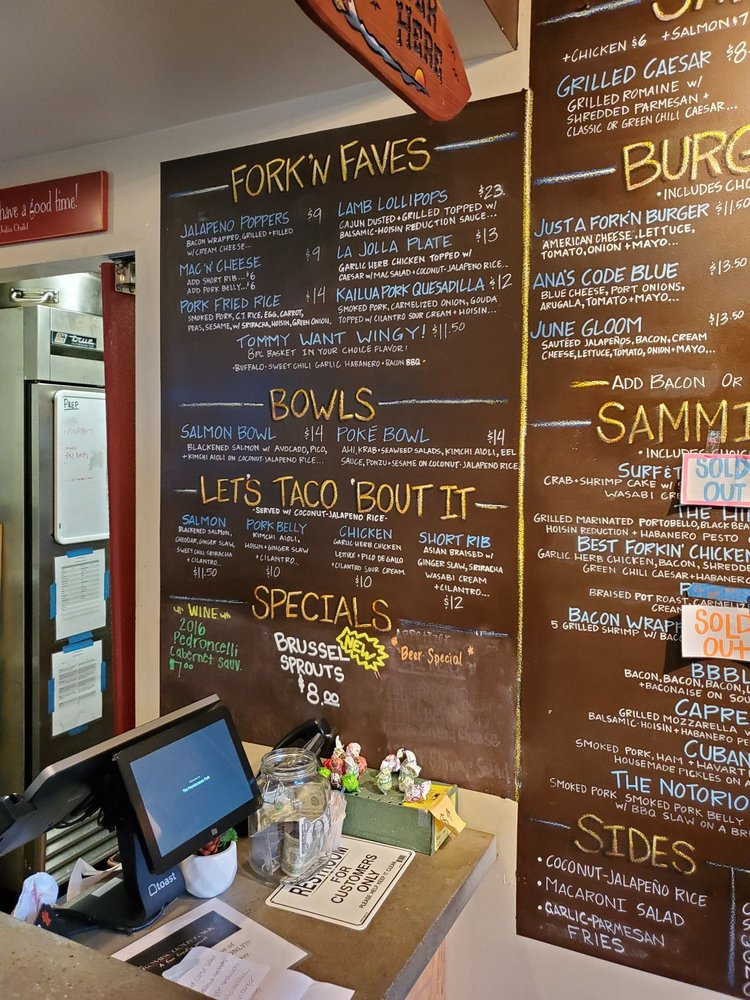 HERE
have a good time!
Julia Child
FORK'N FAVES
JALAPENO POPPERS $9
BACON WRAPPED, GRILLED + FILLED
W/ CREAM CHEESE...
MAC 'N' CHEESE $9
ADD SHORT RIB...$6
ADD PORK BELLY...$6
PORK FRIED RICE $14
SMOKED PORK, C.J. RICE, EGG, CARROT,
PEAS, SESAME, W/ SRIRACHA, HOISIN, GREEN ONION.
LAMB LOLLIPOPS $23
CAJUN DUSTED + GRILLED TOPPED W/
BALSAMIC-HOISIN REDUCTION SAUCE...
LA JOLLA PLATE $13
GARLIC HERB CHICKEN TOPPED W/
CAESAR W/ MAC SALAD + COCONUT-JALAPENO RICE...
KAILUA PORK QUESADILLA $12
SMOKED PORK, CARMELIZED ONION, GOUDA
TOPPED W/ CILANTRO SOUR CREAM + HOISIN...
TOMMY WANT WINGY! $11.50
8PC BASKET IN YOUR CHOICE FLAVOR!
•BUFFALO•SWEET CHILI GARLIC HABANERO•BACON BBQ•
BOWLS
SALMON BOWL $14
BLACKENED SALMON W/ AVOCADO, PICO,
+ KIMCHI AIOLI ON COCONUT-JALAPENO RICE...
POKÉ BOWL $14
AHI, KRAB + SEAWEED SALADS, KIMCHI AIOLI, EEL
SAUCE, PONZU + SESAME ON COCONUT-JALAPENO RICE
LET'S TACO 'BOUT IT
•SERVED W/ COCONUT-JALAPENO RICE•
SALMON
BLACKENED SALMON,
CHEDDAR, GINGER SLAW,
SWEET CHILI SRIRACHA
+ CILANTRO...
$11.50
PORK BELLY
KIMCHI AIOLI,
HOISIN + GINGER SLAW
+ CILANTRO...
$10
CHICKEN
GARLIC HERB CHICKEN
LETTUCE + PICO DE GALLO
+ CILANTRO SOUR CREAM
$10
SHORT RIB
ASIAN BRAISED W/
GINGER SLAW, SRIRACHA
WASABI CREAM
+ CILANTRO...
$12
SPECIALS
WINE
2016
Pedroncelli
Cabernet Sauv.
$7.00
BRUSSEL
SPROUTS
$8.00
NEW!
*Beer Special*
+CHICKEN $6 +SALMON $7
GRILLED CAESAR $8
GRILLED ROMAINE W/
SHREDDED PARMESAN +
CLASSIC OR GREEN CHILI CAESAR...
BURG
•INCLUDES CH
JUST A FORK'N BURGER $11.50
AMERICAN CHEESE, LETTUCE,
TOMATO, ONION + MAYO...
ANA'S CODE BLUE $13.50
BLUE CHEESE, PORT ONIONS,
ARUGALA, TOMATO + MAYO...
JUNE GLOOM $13.50
SAUTÉED JALAPEÑOS, BACON, CREAM
CHEESE, LETTUCE, TOMATO, ONION + MAYO...
ADD BACON OR
SAMMI
•INCLUDES CHOICE
SURF & T
CRAB + SHRIMP CAKE W/
WASABI CRE
SOLD
OUT
GRILLED MARINATED PORTOBELLO, BLACK BEA
HOISIN REDUCTION + HABANERO PESTO
BEST FORKIN' CHICKEN
GARLIC HERB CHICKEN, BACON, SHREDDE
GREEN CHILI CAESAR + HABANER
BRAISED POT ROAST, CARMELIZ
CREAM
BACON WRAPP
5 GRILLED SHRIMP W/ BAC
SOLD
OUT
BBBL
BACON, BACON, BACON,
+ BACONAISE ON SOU
CAPRE
GRILLED MOZZARELLA
BALSAMIC-HOISIN + HABANERO PE
CUBAN
SMOKED PORK, HAM + HAVART
HOUSEMADE PICKLES ON A
THE NOTORIO
SMOKED PORK, SMOKED PORK BELLY
W/ BBQ SLAW ON A BR
SIDES
• COCONUT-JALAPEÑO RICE
• MACARONI SALAD
• GARLIC-PARMESAN
FRIES
true
PREP
toast
RESTROOM
FOR
CUSTOMERS
ONLY
PLEASE HELP KEEP IT CLEAN